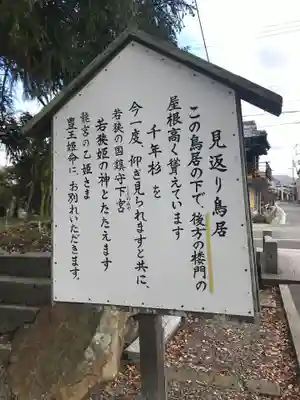 見返り鳥居
この鳥居の下で、後方の楼門の
屋根高く聳えています
千年杉を
今一度、仰ぎ見られますと共に、
若狭の国鎮守下宮
若狭姫の神とたたえます
龍宮の乙姫さま
豊玉姫命に、お別れいただきます。